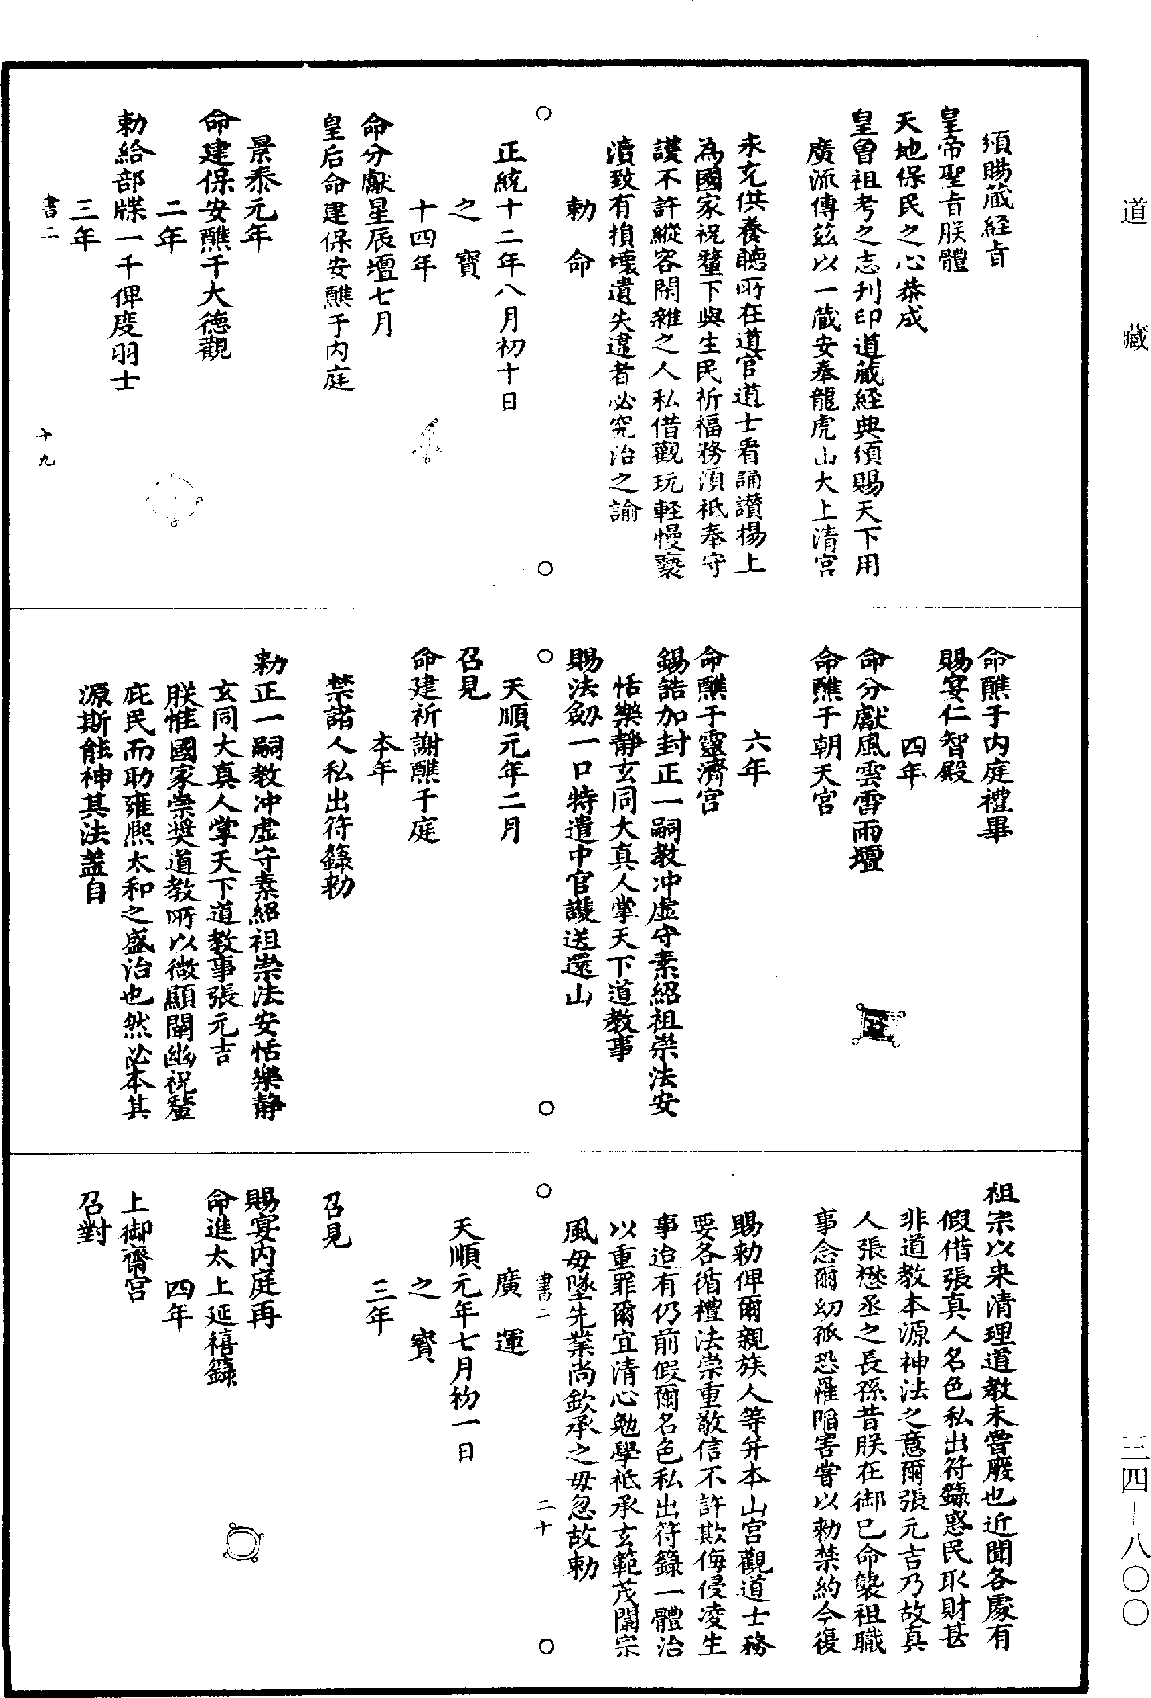 道藏
頒賜藏經旨
皇帝聖旨朕體
天地保民之心恭成
皇曾祖考之志刊印道藏經典頒賜天下用
廣流傳茲以一藏安奉龍虎山大上清宮
永充供養聽所在道官道士看誦讚揚上
為國家祝釐下與生民祈福務須祗奉守
護不許縱容閑雜之人私借觀玩輕慢褻
瀆致有損壞遺失違者必究治之諭
○ 勅命 ○
正統十二年八月初十日
之寶
十四年
命分獻星辰壇七月
皇后命建保安醮于內庭
景泰元年
命建保安醮于大德觀
二年
勅給部牒一千俾度羽士
三年
書二 十九
命醮于內庭禮畢
賜宴仁智殿
四年
命分獻風雲雷雨壇
命醮于朝天宮
六年
命醮于靈濟宮
錫誥加封正一嗣教冲虛守素紹祖崇法安
恬樂靜玄同大真人掌天下道教事
賜法劒一口特遣中官護送還山
○ ○
天順元年二月
召見
命建祈謝醮于庭
本年
禁諸人私出符籙勅
勅正一嗣教冲虛守素紹祖崇法安恬樂靜
玄同大真人掌天下道教事張元吉
朕惟國家崇奬道教所以微顯闡幽祝釐
庇民而助雍熙太和之盛治也然必本其
源斯能神其法蓋自
祖宗以來清理道教未嘗廢也近聞各處有
假借張真人名色私出符籙惑民取財甚
非道教本源神法之意爾張元吉乃故真
人張懋丞之長孫昔朕在御已命襲祖職
事念爾幼孤恐罹陷害嘗以勅禁約今復
賜勅俾爾親族人等并本山宮觀道士務
要各循禮法崇重敬信不許欺侮侵凌生
事迨有仍前假爾名色私出符籙一體治
以重罪爾宜清心勉學祗承玄範茂闡宗
風毋墜先業尚欽承之毋忽故勅
○ 書二 二十 ○
廣運
天順元年七月初一日
之寶
三年
召見
賜宴內庭再
命進太上延禧籙
四年
上御齋宮
召對
三四—八〇〇